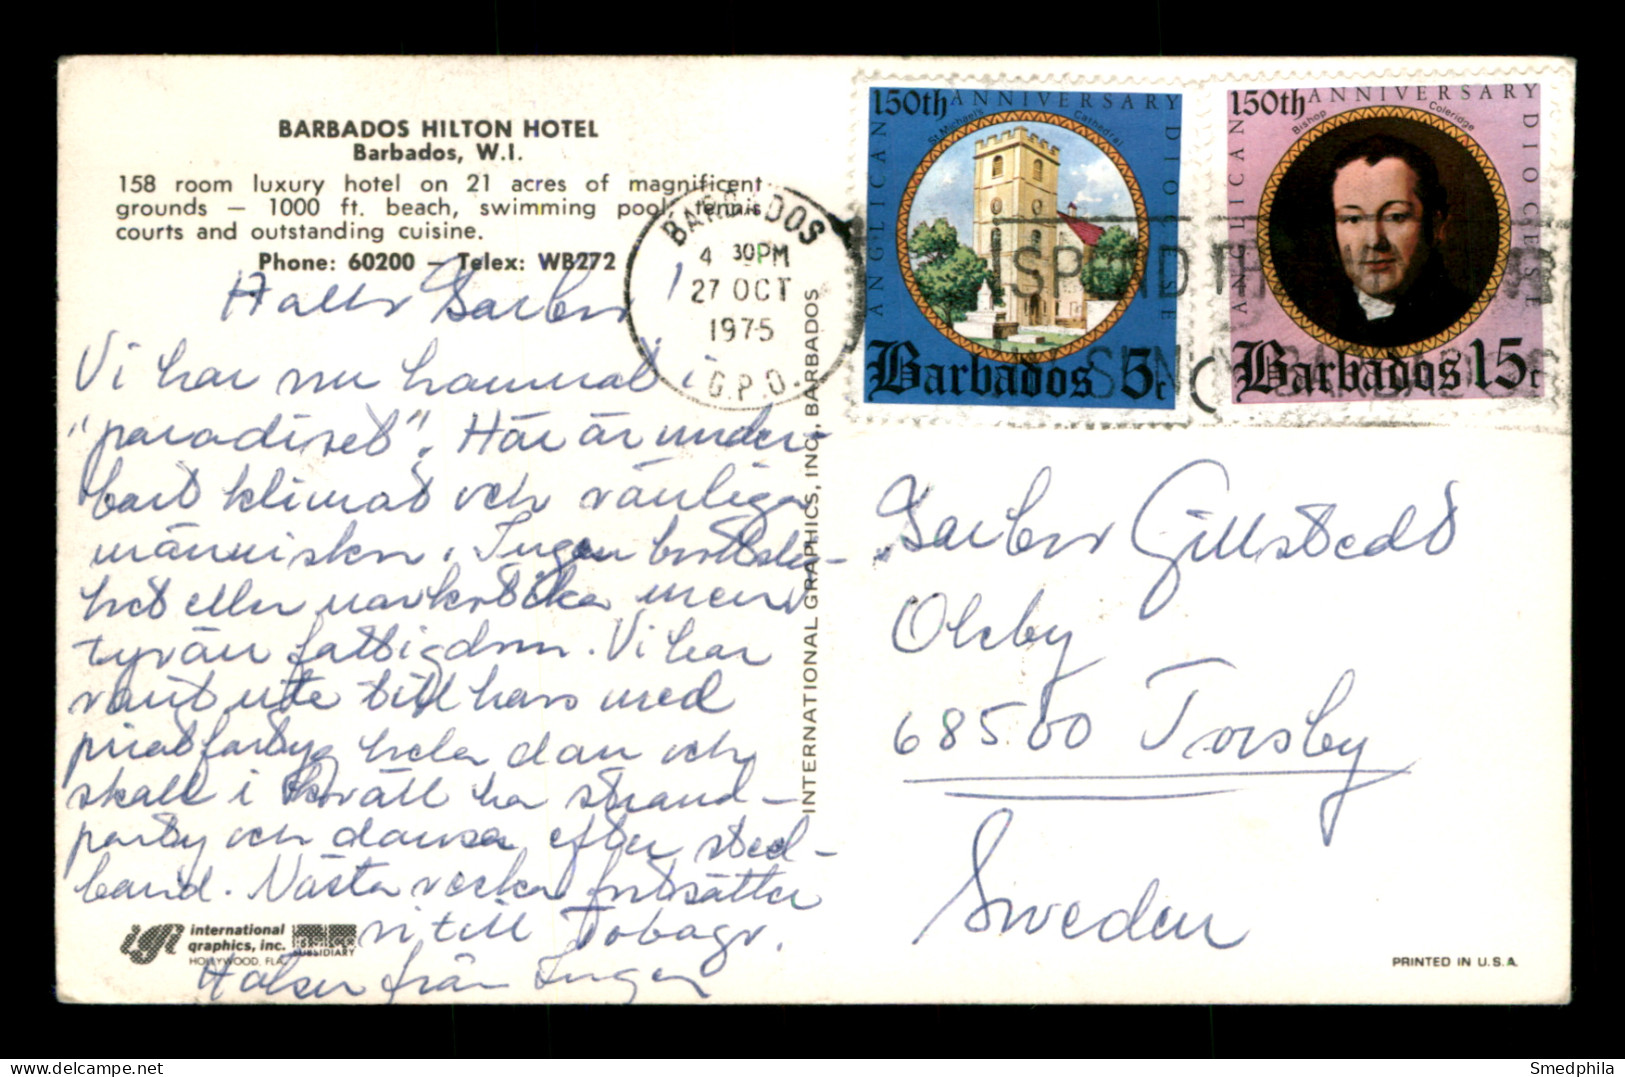 BARBADOS HILTON HOTEL
Barbados, W.I.
158 room luxury hotel on 21 acres of magnificent
grounds — 1000 ft. beach, swimming pool, tennis
courts and outstanding cuisine.
Phone: 60200 — Telex: WB272
Vi har nu hamnat i
"paradiset". Här är under-
bart klimat och vänliga
människor. Ingen brottslig-
het eller narkotika men
tyvärr fattigdom. Vi har
varit ute till havs med
piratfartyg hela dan och
skall i kväll ha strand-
party och dansa efter steel-
band. Nästa vecka fortsätter
vi till Tobago.
Hälsn från Inger
international
graphics, inc.
HOLLYWOOD, FLA.
SUBSIDIARY
INTERNATIONAL GRAPHICS, INC., BARBADOS
BARBADOS
4 30PM
27 OCT
1975
G.P.O.
150th ANNIVERSARY
ANGLICAN DIOCESE
St. Michael's Cathedral
Barbados 5c
150th ANNIVERSARY
ANGLICAN DIOCESE
Bishop Coleridge
Barbados 15c
Gillstedt
Oleby
68500 Torsby
Sweden
PRINTED IN U.S.A.
Smedphila